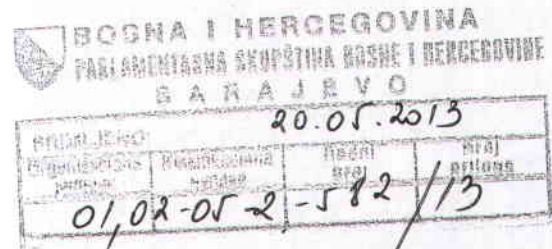 BOSNA I HERCEGOVINA
PARLAMENTARNA SKUPŠTINA BOSNE I HERCEGOVINE
SARAJEVO
PRIMLJENO: 20.05.2013
Organizaciona jedinica Klasifikaciona oznaka Redni broj Broj priloga
01,02-05-2-582/13